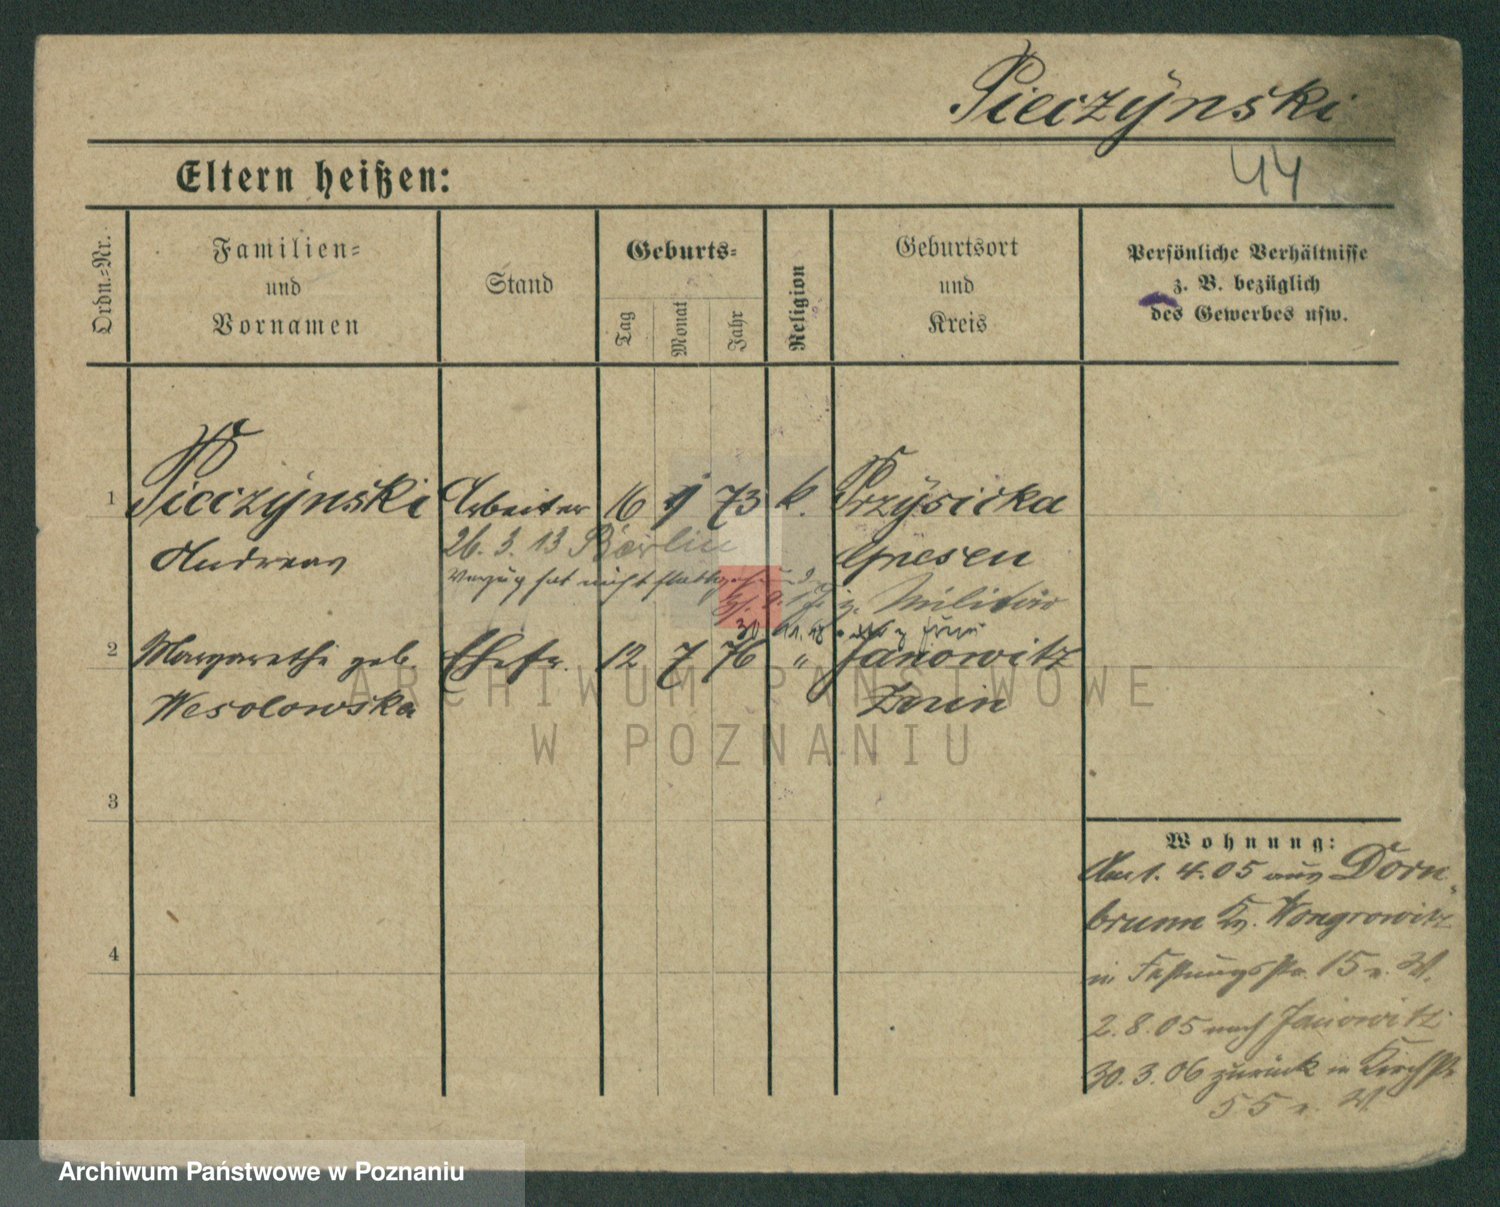 Pieczÿnski
44
Eltern heißen:
Ordn.-Nr.
Familien-
und
Vornamen
Stand
Geburts-
Tag
Monat
Jahr
Religion
Geburtsort
und
Kreis
Persönliche Verhältnisse
z. B. bezüglich
des Gewerbes usw.
1 Pieczÿnski Arbeiter 16 73 k. Przÿsieka
Andreas 26. 3. 13 Berlin Gnesen
Verzug hat nicht stattgefunden
z. Militär
30 11. 18
2 Margarethe geb. Ehefr. 12 7 76 " Janowitz
Wesolowska Znin
ARCHIWUM PAŃSTWOWE
W POZNANIU
3
4
Wohnung:
Am 1. 4. 05 aus Dorn-
brunn Kr. Wongrowitz
in Festungsstr. 15 r. W.
2. 8. 05 nach Janowitz
30. 3. 06 zurück in Kirchstr
55 r. W.
Archiwum Państwowe w Poznaniu